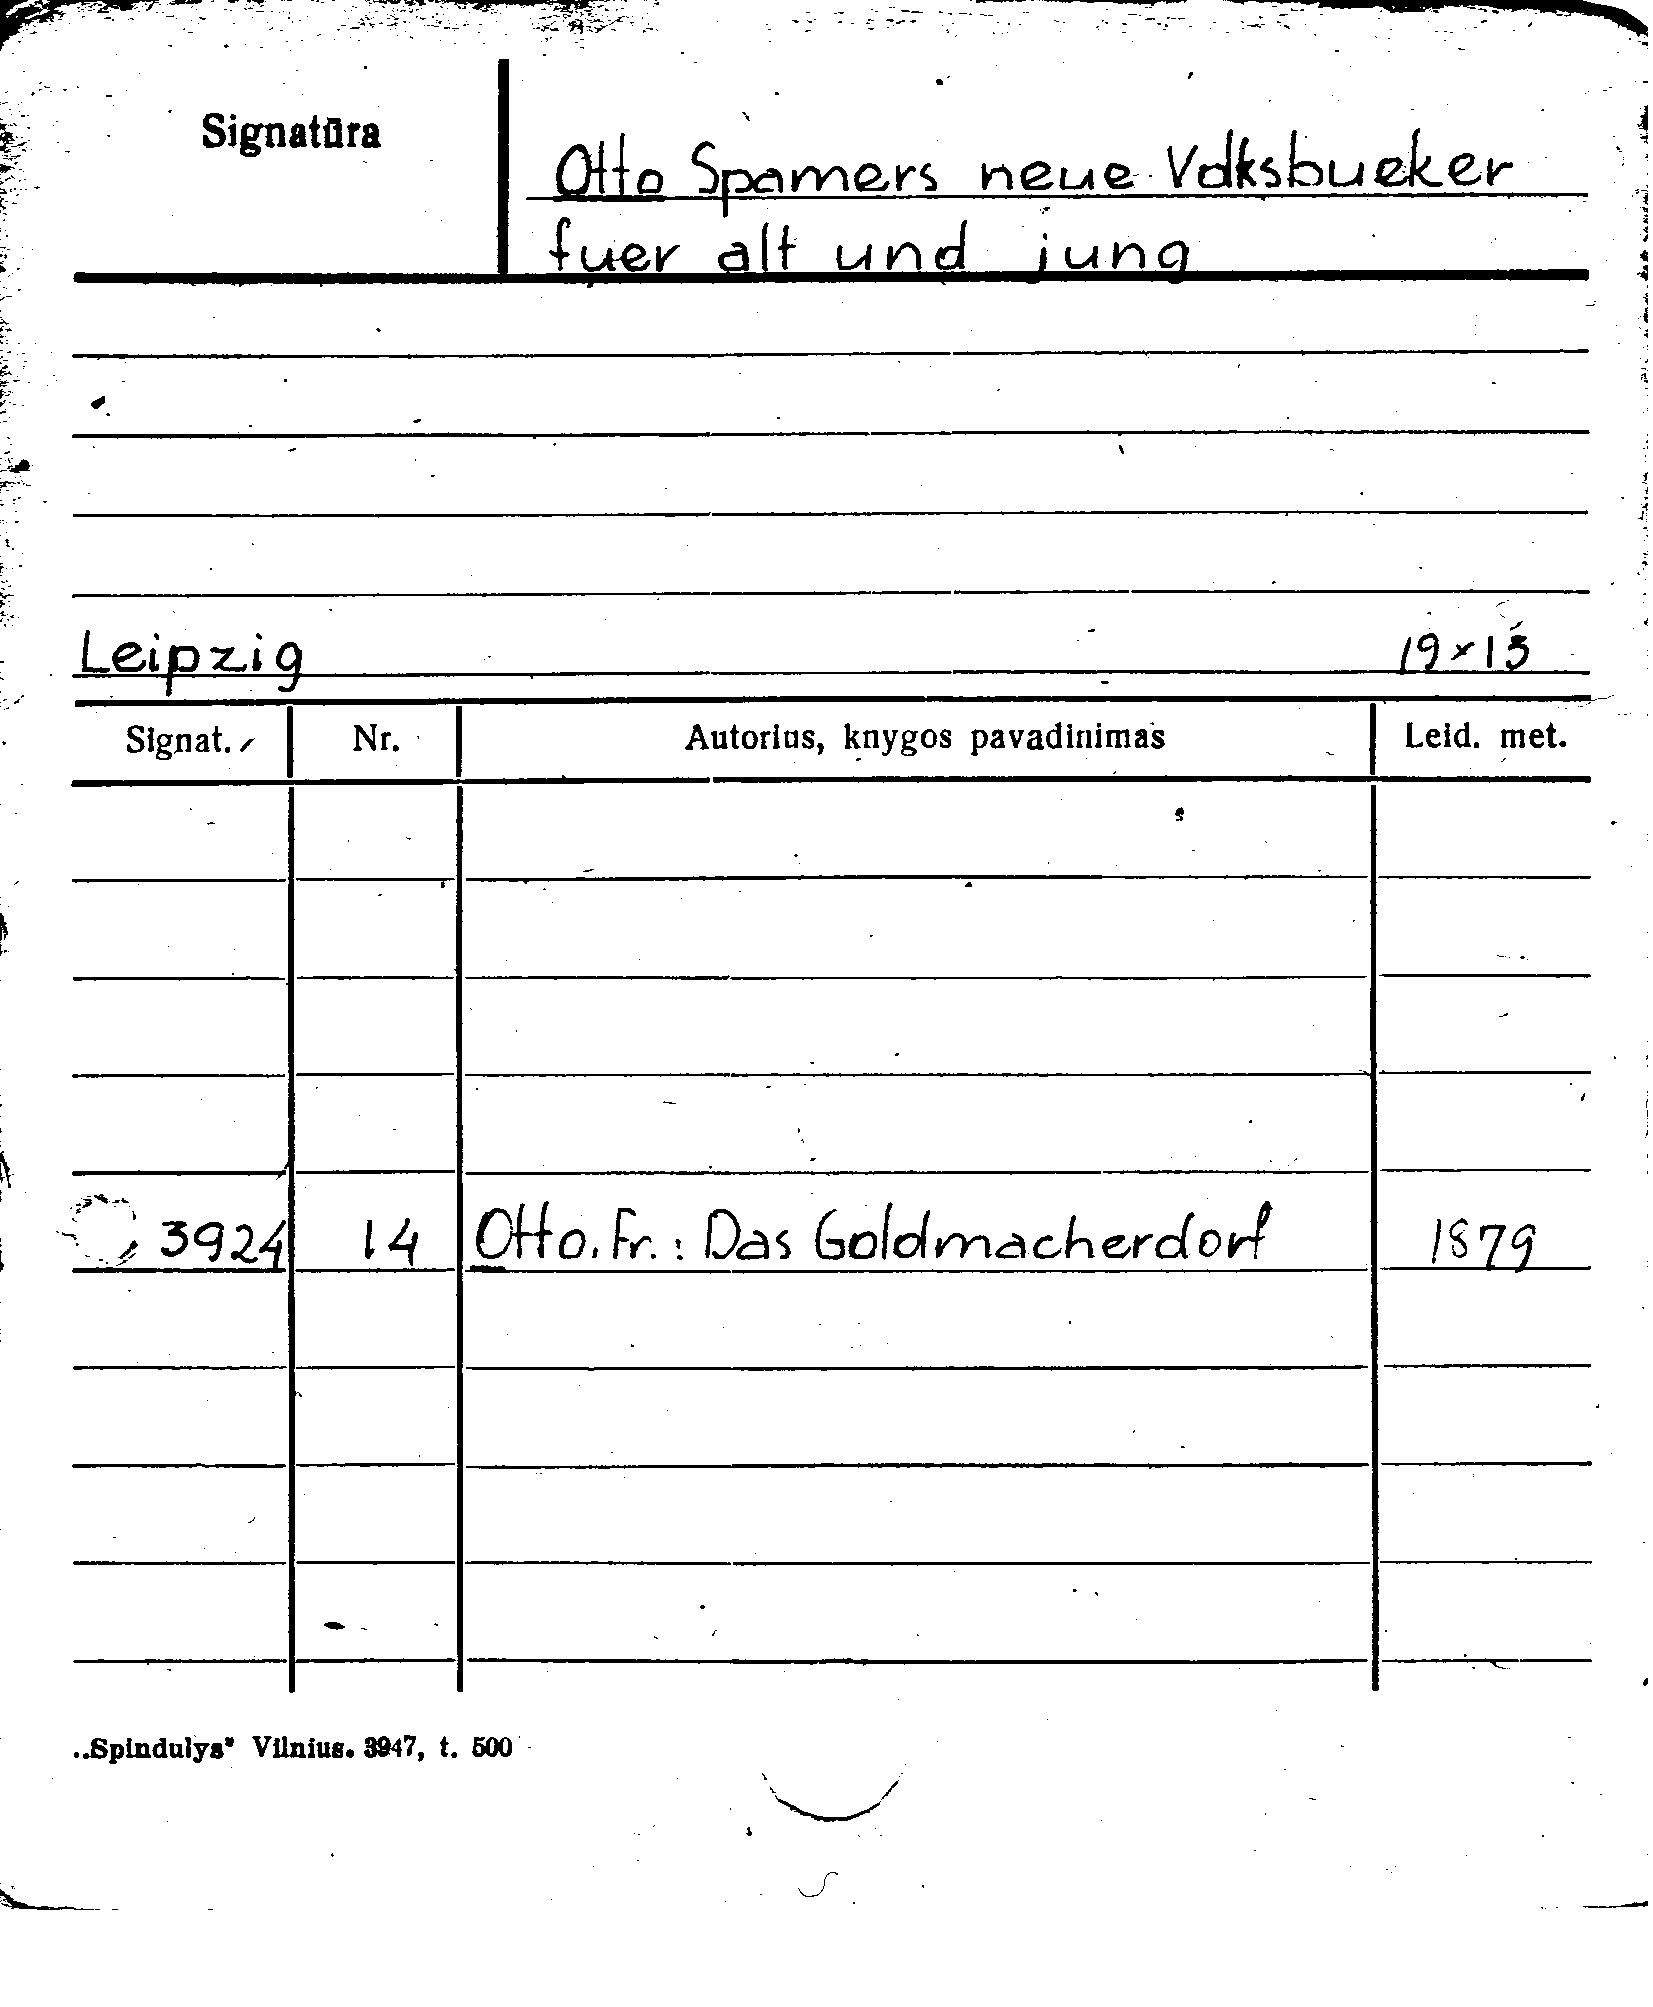 Signatūra
Otto Spamers neue Volksbueker
fuer alt und jung
Leipzig 19x13
Signat. Nr. Autorius, knygos pavadinimas Leid. met.
3924 14 Otto. Fr.: Das Goldmacherdorf 1879
„Spindulys“ Vilnius. 3947, t. 500